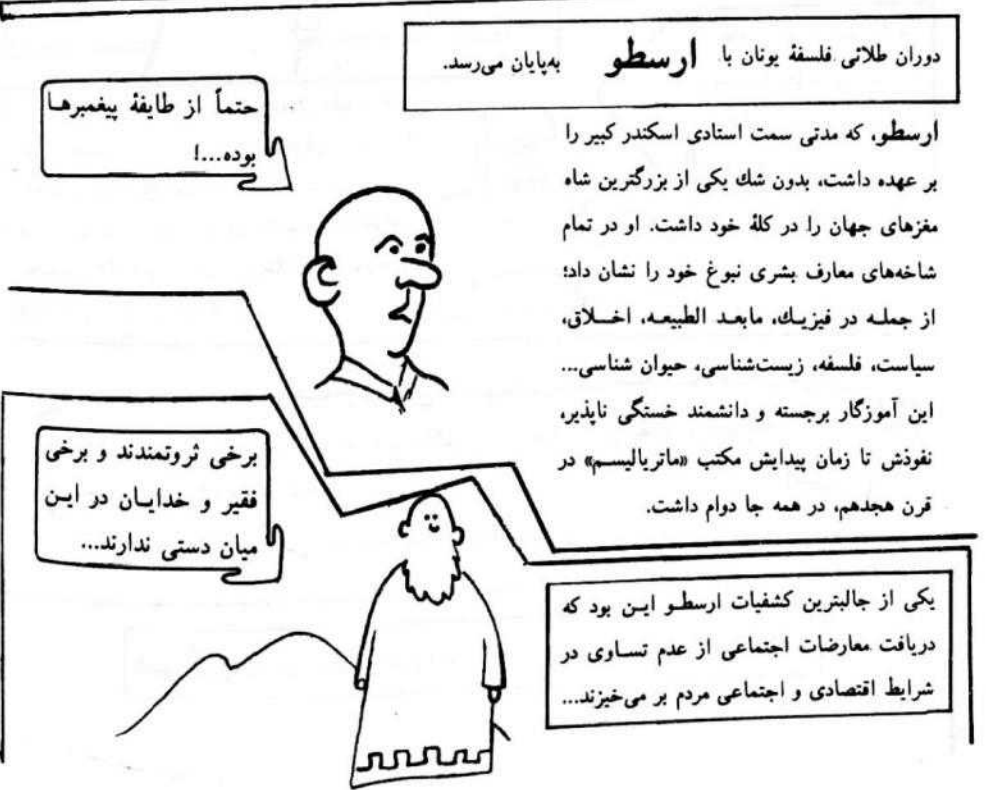 دوران طلائی فلسفهٔ یونان با ارسطو به‌پایان می‌رسد.
ارسطو، که مدتی سمت استادی اسکندر کبیر را
بر عهده داشت، بدون شك یکی از بزرگترین شاه
مغزهای جهان را در کلهٔ خود داشت. او در تمام
شاخه‌های معارف بشری نبوغ خود را نشان داد؛
از جملـه در فیزیـك، مابعـد الطبیعـه، اخـــلاق،
سیاست، فلسفه، زیست‌شناسی، حیوان شناسی...
این آموزگار برجسته و دانشمند خستگی ناپذیر،
نفوذش تا زمان پیدایش مکتب «ماتریالیسـم» در
قرن هجدهم، در همه جا دوام داشت.
حتماً از طایفهٔ پیغمبرهـا
بوده...!
برخی ثروتمندند و برخی
فقیر و خدایـان در ایـن
میان دستی ندارند...
یکی از جالبترین کشفیات ارسطـو ایـن بود که
دریافت معارضات اجتماعی از عدم تسـاوی در
شرایط اقتصادی و اجتماعی مردم بر می‌خیزند...